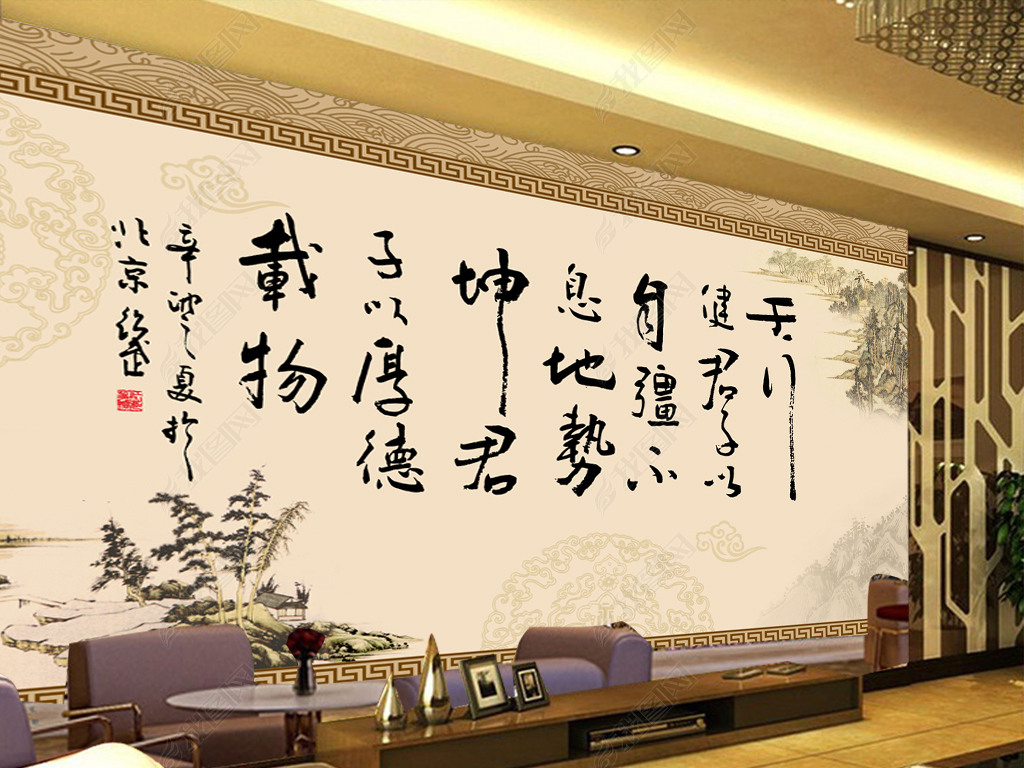 天行
健君子以
自彊不
息地勢
坤君
子以厚德
載物
辛之夏於
北京